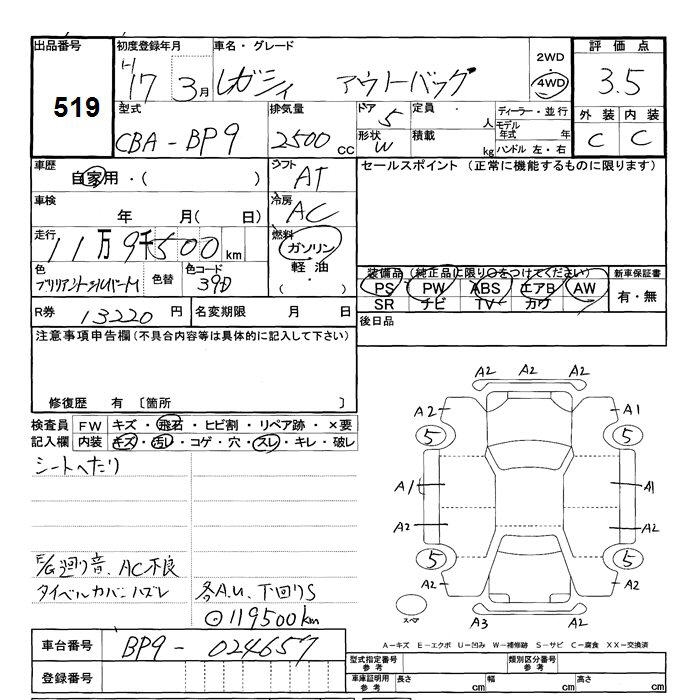 出品番号
519
初度登録年月
H17 3月
車名・グレード
レガシィ アウトバック
2WD
・
4WD
評価点
3.5
外装 内装
C C
型式
CBA-BP9
排気量
2500 CC
ドア 5
形状 W
定員 ・ 人
積載 kg
ディーラー・並行
モデル年式 年
ハンドル 左・右
車歴
自家用・( )
シフト
AT
セールスポイント (正常に機能するものに限ります)
車検
年 月( 日)
冷房
AC
走行
11万9千500km
燃料
ガソリン
軽油
( ・ )
色
ブリリアントシルバーM
色替
色コード
39D
装備品(純正品に限り○をつけてください)
PS PW ABS エアB AW
SR ナビ TV カワ
新車保証書
有・無
R券 13220 円
名変期限 月 日
後日品
注意事項申告欄(不具合内容等は具体的に記入して下さい)
修復歴 有 〔箇所 〕
検査員記入欄
FW キズ・飛石・ヒビ割・リペア跡・×要
内装 キズ・汚レ・コゲ・穴・スレ・キレ・破レ
シートへたり
E/G廻り音、AC不良
タイベルカバーハズレ
各A.U、下回りS
⊙119500km
A2 A2 A2
A2 A1
5 5
A1 A1
A2 A2
5 5
A2 A2
A3 A2
スペア
A－キズ E－エクボ U－凹み W－補修跡 S－サビ C－腐食 XX－交換済
車台番号 BP9-024657
登録番号
型式指定番号
参考
類別区分番号
参考
車庫証明用
参考
長さ cm 幅 cm 高さ cm